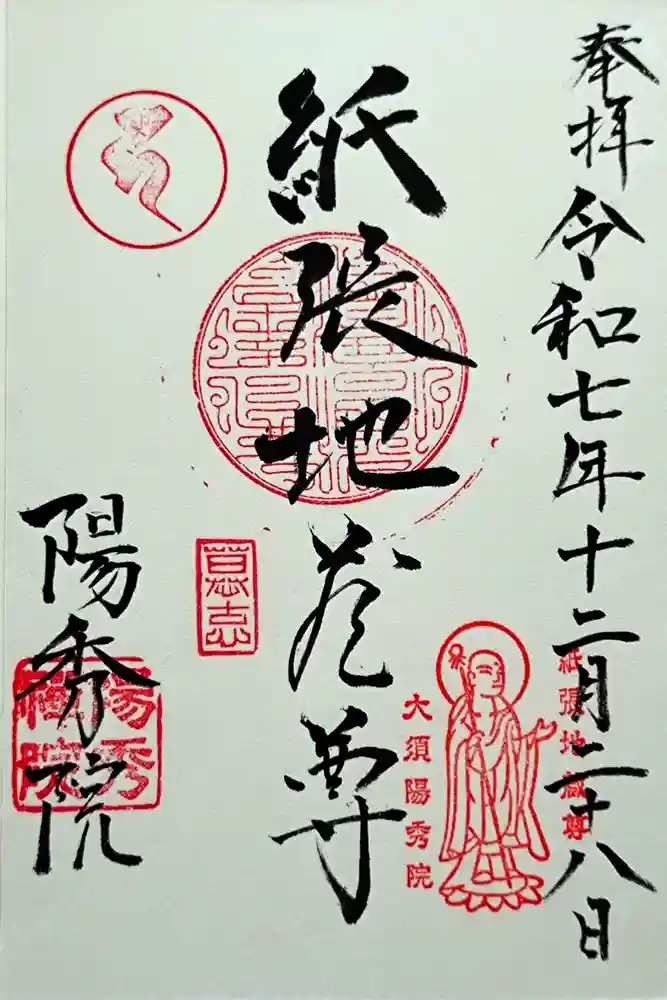 奉拝 令和七年十二月二十八日
紙張地蔵尊
陽秀院
紙張地蔵尊
大須陽秀院
陽秀禅院